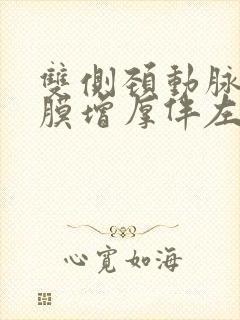 雙側頚動脉
膜增厚伴左
心寬如海